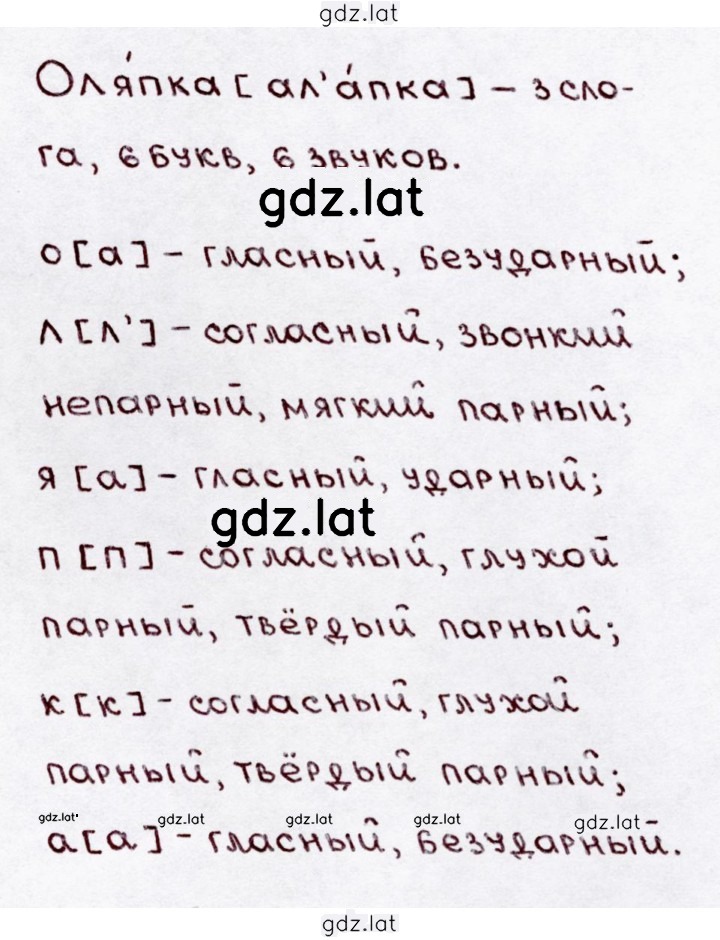 gdz.lat
Оля́пка [ал’а́пка] – 3 сло-
га, 6 букв, 6 звуков.
gdz.lat
о [а] – гласный, безударный;
л [л’] – согласный, звонкий
непарный, мягкий парный;
я [а] – гласный, ударный;
gdz.lat
п [п] – согласный, глухой
парный, твёрдый парный;
к [к] – согласный, глухой
парный, твёрдый парный;
gdz.lat gdz.lat gdz.lat gdz.lat gdz.lat
а [а] – гласный, безударный.
gdz.lat